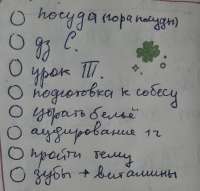 посуда (гора посуды)
дз С.
урок Т.
подготовка к собесу
убрать бельё
аудирование 1 г
пройти тему
зубы + витамины